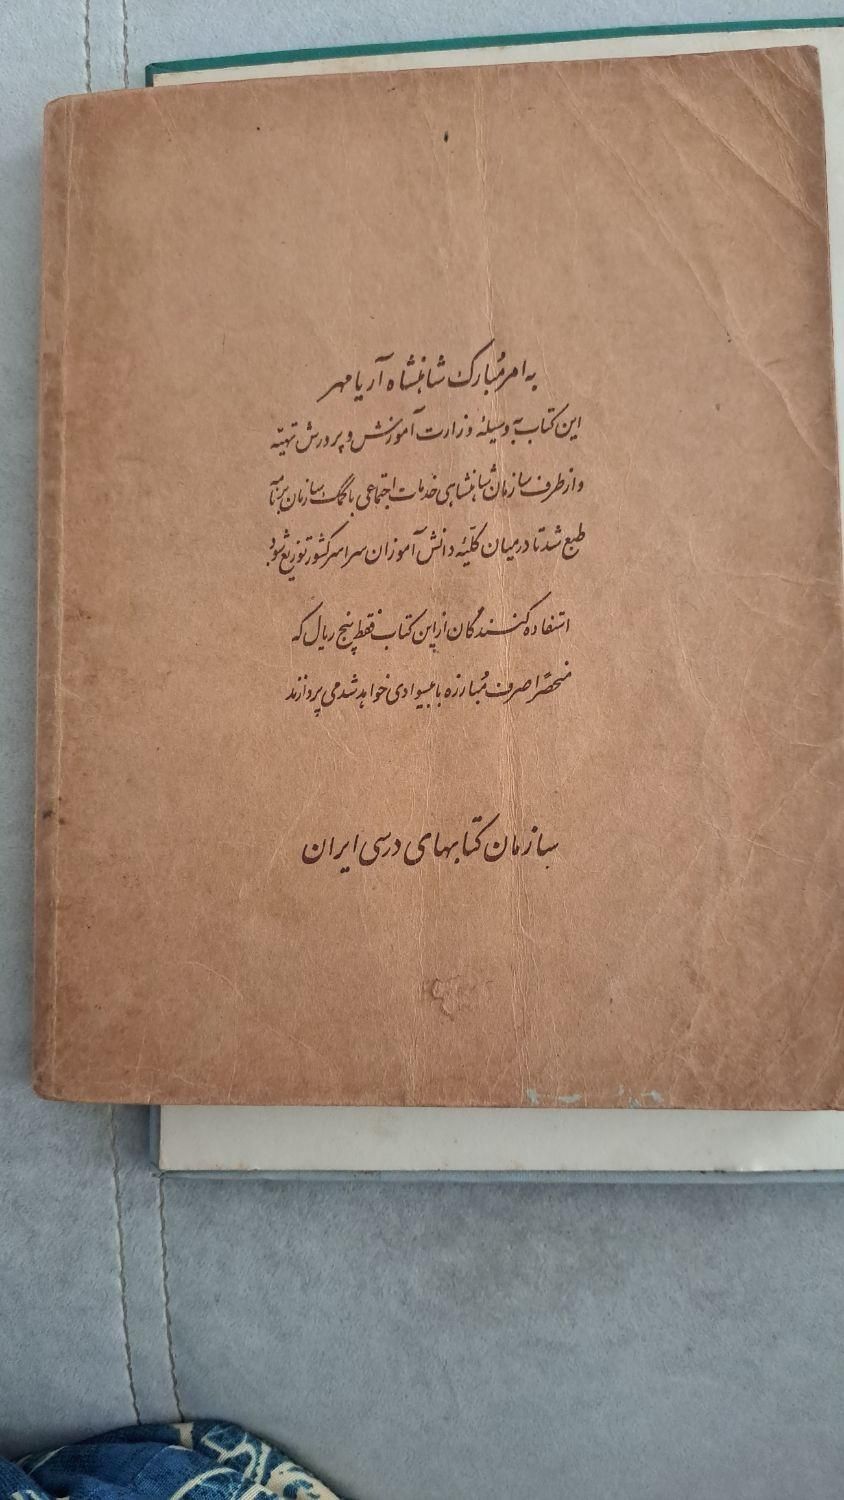 به امر مُبارک شاهنشاه آریامهر
این کتاب به وسیلهٔ وزارت آموزش و پرورش تهیّه
و از طرف سازمان شاهنشاهی خدمات اجتماعی با کمک سازمان برنامه
طبع شد تا در میان کلیّهٔ دانش آموزان سراسر کشور توزیع شود
استفاده کنندگان از این کتاب فقط پنج ریال که
منحصراً صرف مُبارزه با بیسوادی خواهد شد می پردازند
سازمان کتابهای درسی ایران